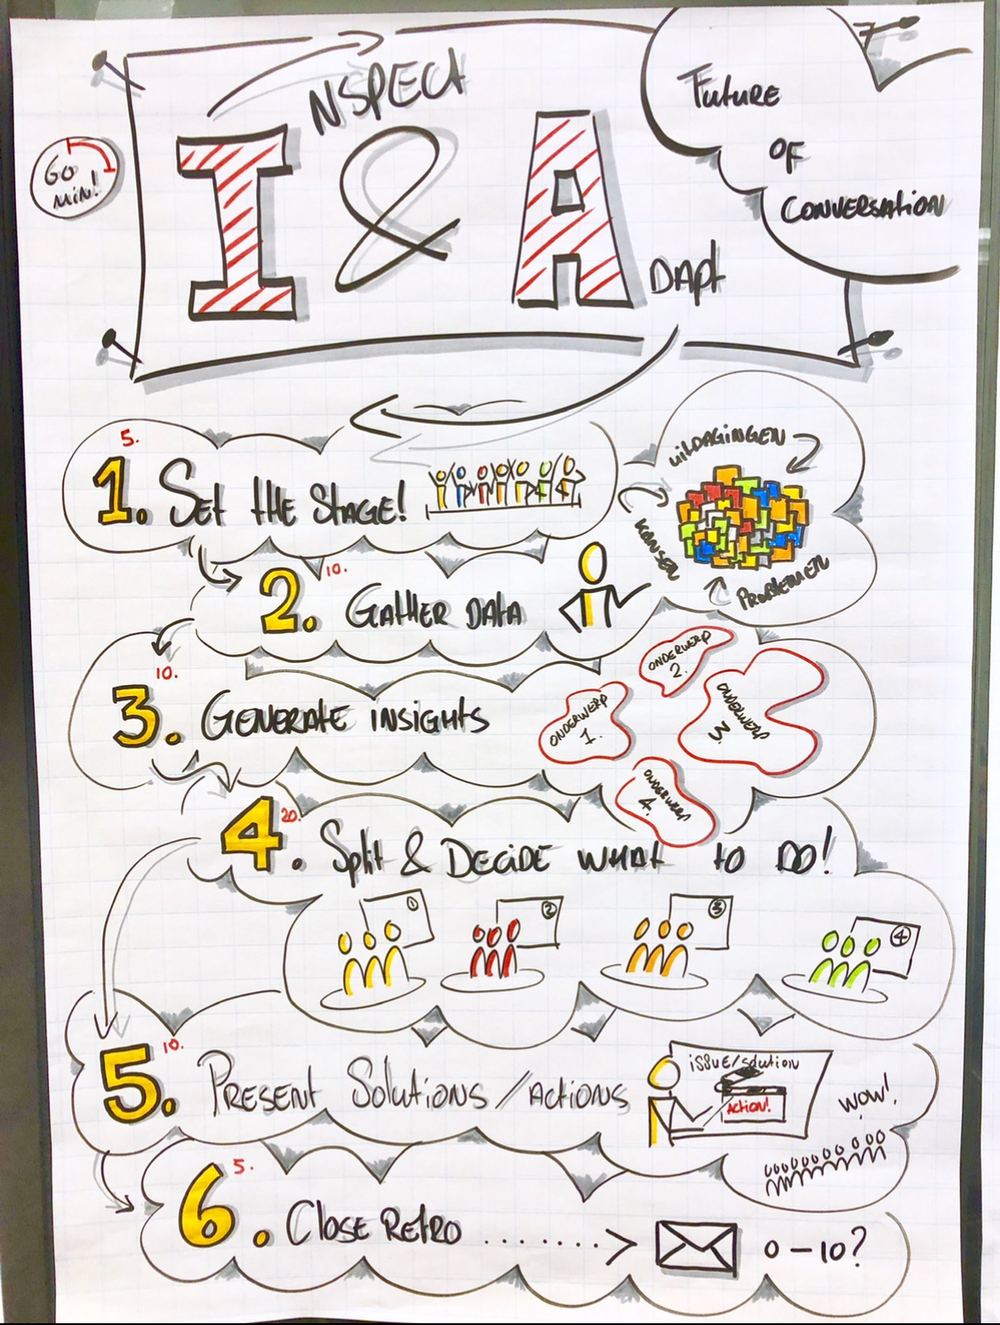 INSPECT
&
ADAPT
60
MIN!
FUTURE
OF
CONVERSATION
5.
1. SET THE STAGE!
UITDAGINGEN
KANSEN
PROBLEMEN
10.
2. GATHER DATA
10.
3. GENERATE INSIGHTS
ONDERWERP
1.
ONDERWERP
2.
ONDERWERP
3
ONDERWERP
4.
20.
4. Split & DECIDE WHAT TO DO!
1
2
3
4
10.
5. PRESENT Solutions / ACTIONS
ISSUE/Solution
ACTION!
WOW!
5.
6. CLOSE RETRO ........> 0-10?